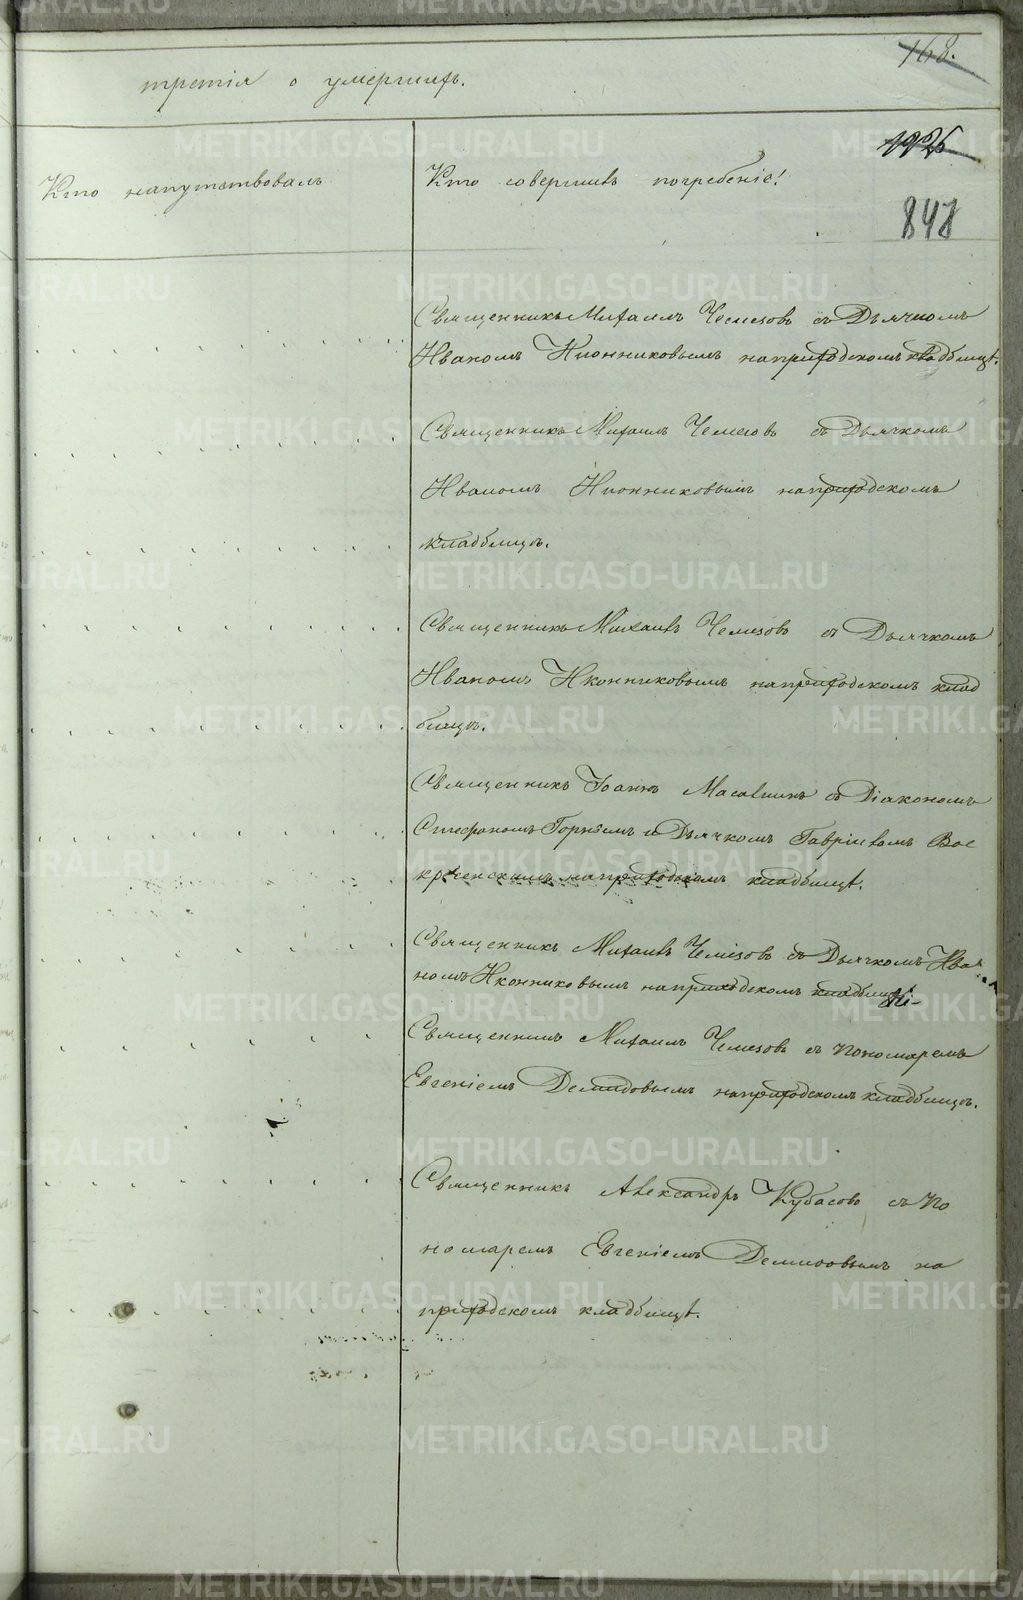 168.
третія о умершихъ.
1925
Кто напутствовалъ
Кто совершивъ погребеніе!
848
Священникъ Михаилъ Чемезовъ съ Дьячкомъ
Иваномъ Иконниковымъ на приходскомъ кладбищѣ.
Священникъ Михаилъ Чемезовъ съ Дьячкомъ
Иваномъ Иконниковымъ на приходскомъ
кладбищѣ.
Священникъ Михаилъ Чемезовъ съ Дьячкомъ
Иваномъ Иконниковымъ на приходскомъ клад
бищѣ.
Священникъ Іоаннъ съ Діакономъ
Стефаномъ и Дьячкомъ Гавріиломъ Вос
кресенскимъ на приходскомъ кладбищѣ.
Священникъ Михаилъ Чемезовъ съ Дьячкомъ Ива
номъ Иконниковымъ на приходскомъ кладбищѣ
Священникъ Михаилъ Чемезовъ съ Пономаремъ
Евгеніемъ Демидовымъ на приходскомъ кладбищѣ.
Священникъ Александръ Кубасовъ съ По
номаремъ Евгеніемъ Демидовымъ на
приходскомъ кладбищѣ.
METRIKI.GASO-URAL.RU